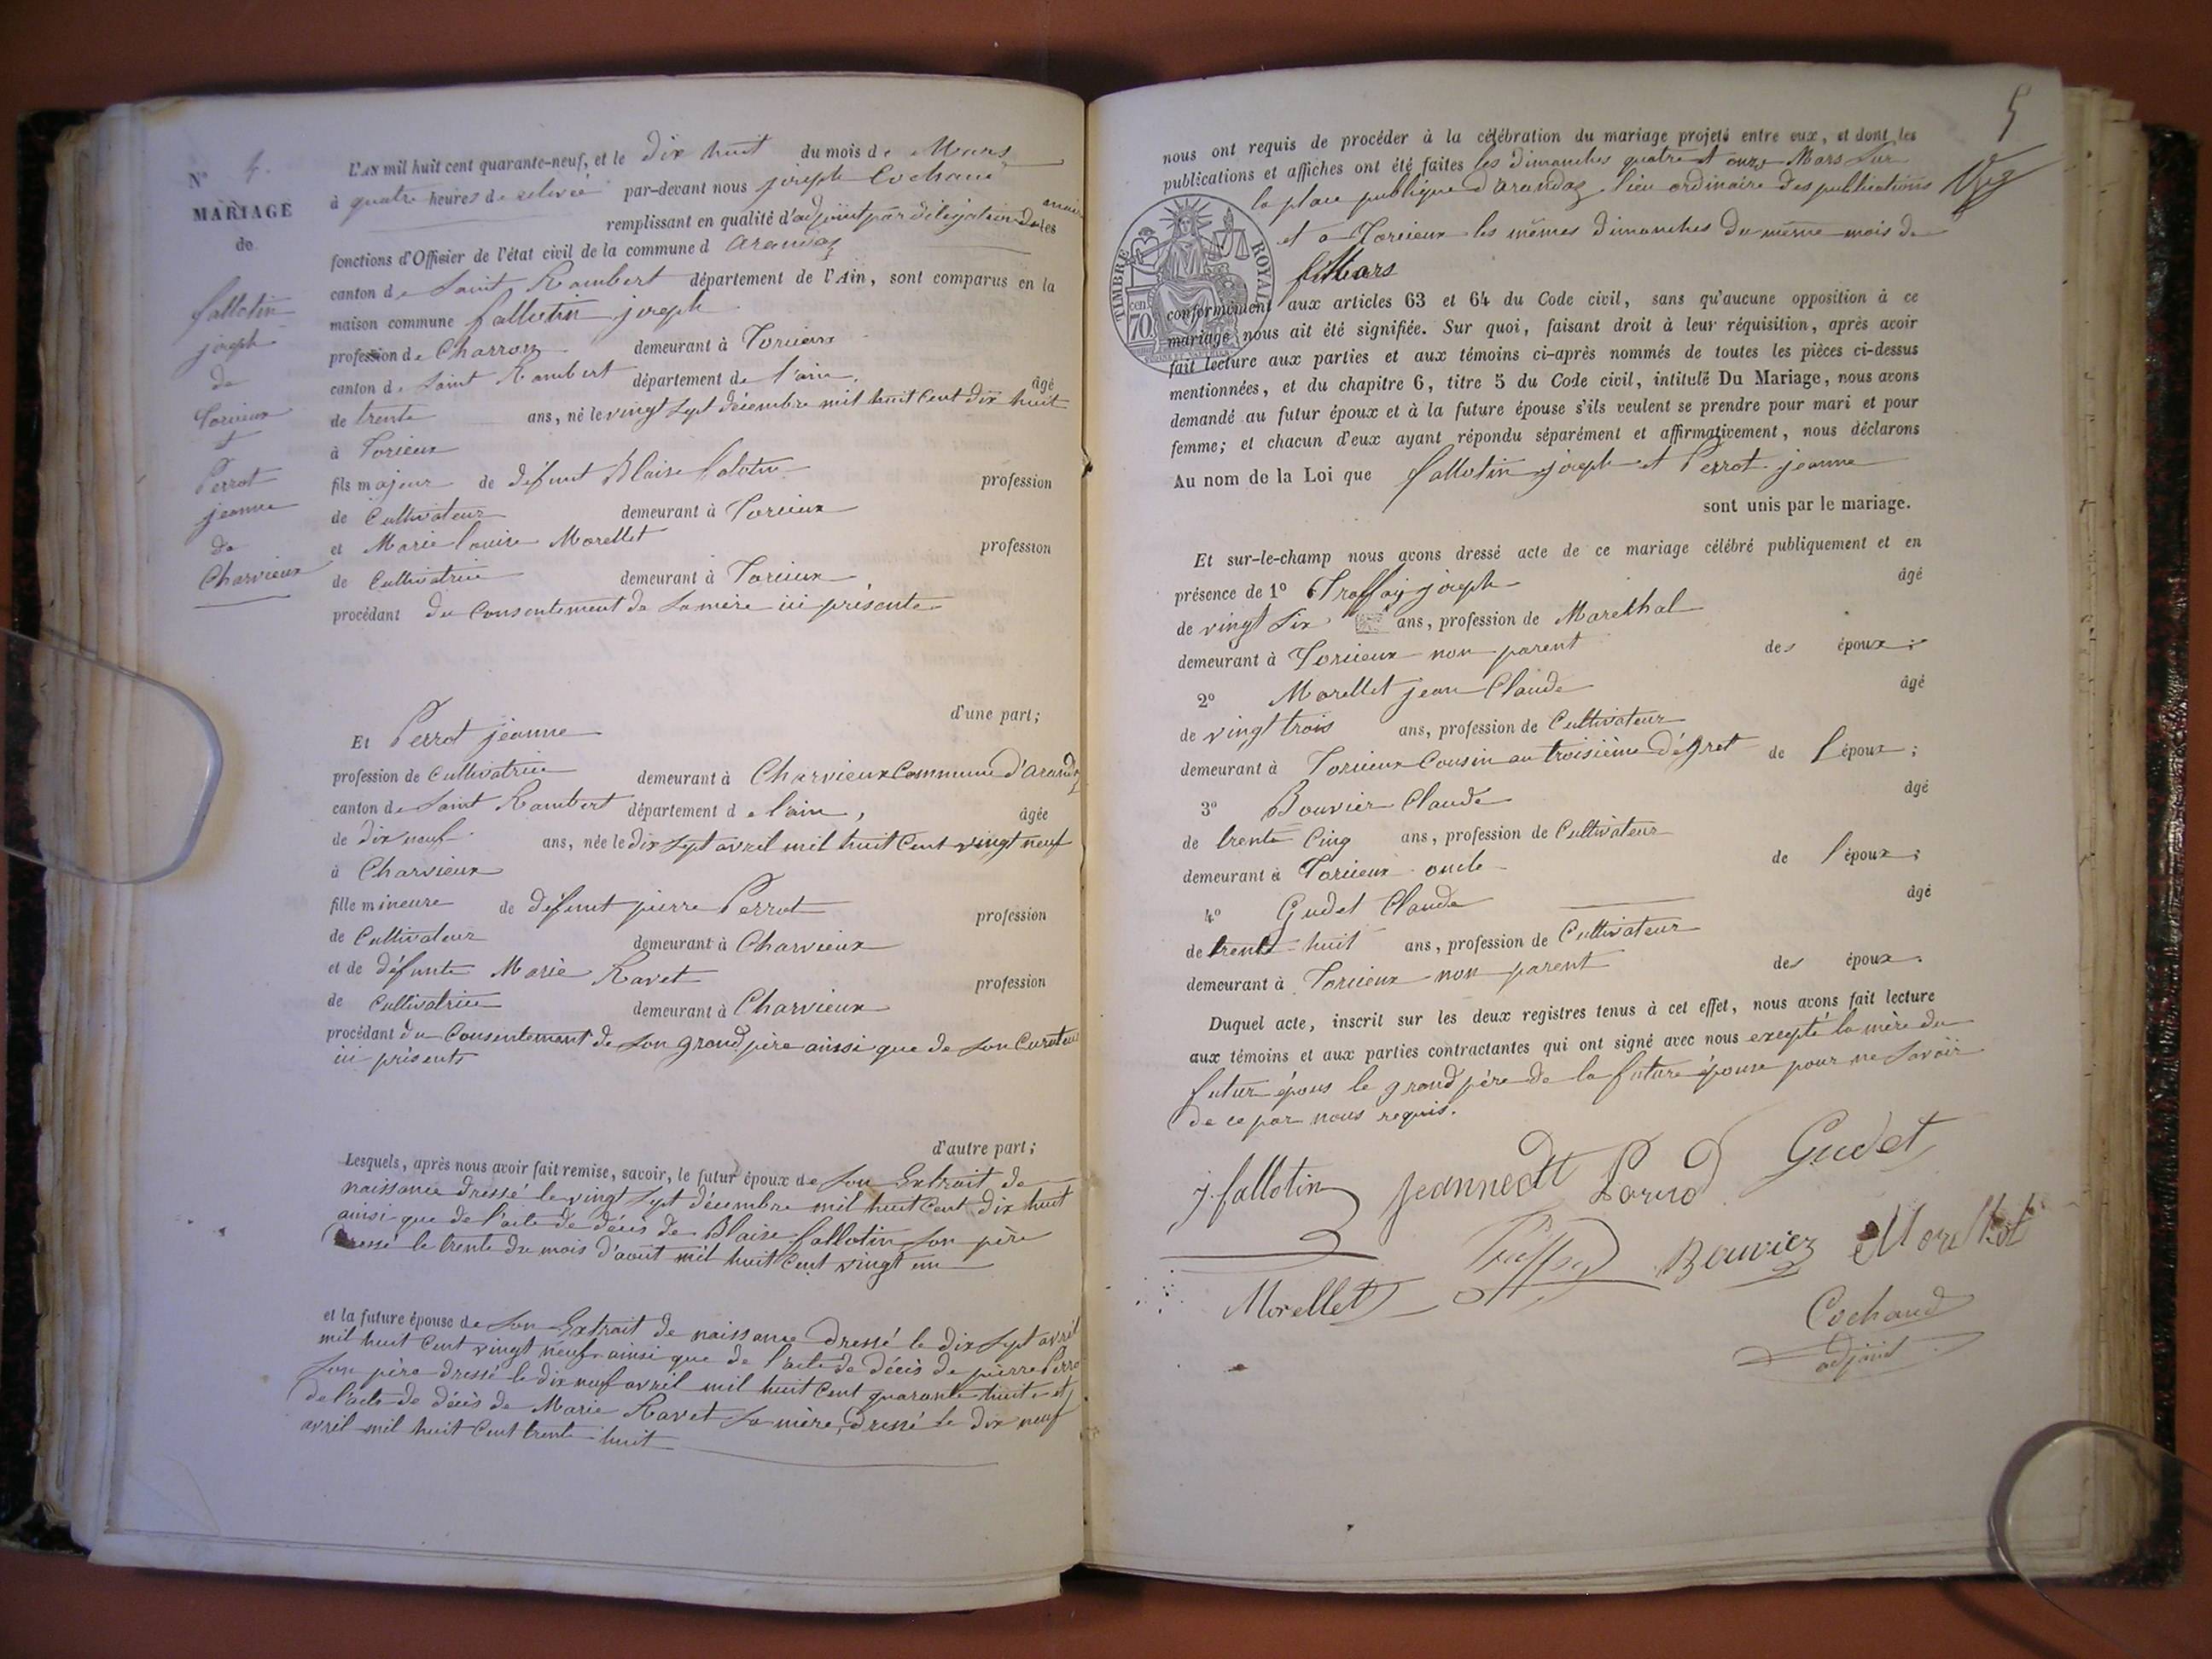 N° 4.
MARIAGE
de
fallotin
joseph
de
Torcieux
et
Perrot
jeanne
de
Charvieux
L'AN mil huit cent quarante-neuf, et le dix huit du mois de Mars
à quatre heures de relevée par-devant nous joseph Cochaud
remplissant en qualité d'adjoint par délégation du maire les
fonctions d'Officier de l'état civil de la commune d arandaz
canton de Saint Rambert département de l'Ain, sont comparus en la
maison commune fallotin joseph
profession de Charron demeurant à Torcieux
canton de Saint Rambert département de l'ain, âgé
de trente ans, né le vingt Sept décembre mil huit Cent dix huit
à Torcieux
fils majeur de défunt Blaise falotin profession
de Cultivateur demeurant à Torcieux
et Marie louise Morellet profession
de Cultivatrice demeurant à Torcieux
procédant du Consentement de Sa mère ici présente
d'une part;
Et Perrot jeanne
profession de Cultivatrice demeurant à Charvieux Commune d'arandaz
canton de Saint Rambert département de l'ain, âgée
de dix neuf ans, née le dix Sept avril mil huit Cent vingt neuf
à Charvieux
fille mineure de défunt pierre Perrot profession
de Cultivateur demeurant à Charvieux
et de défunte Marie Ravet profession
de Cultivatrice demeurant à Charvieux
procédant du Consentement de Son grand père ainsi que de Son Curateur
ici présents
d'autre part;
Lesquels, après nous avoir fait remise, savoir, le futur époux de Son Extrait de
naissance dressé le vingt Sept décembre mil huit Cent dix huit
ainsi que de l'acte de décès de Blaise fallotin Son père
dressé le trente du mois d'août mil huit Cent vingt un
et la future épouse de Son Extrait de naissance dressé le dix Sept avril
mil huit Cent vingt neuf ainsi que de l'acte de décès de pierre Perrot
Son père dressé le dix neuf avril mil huit Cent quarante huit et
de l'acte de décès de Marie Ravet Sa mère, dressé le dix neuf
avril mil huit Cent trente huit
5
nous ont requis de procéder à la célébration du mariage projeté entre eux, et dont les
publications et affiches ont été faites les dimanches quatre et onze Mars Sur
la place publique d'arandaz lieu ordinaire des publications
et a Torcieux les mêmes dimanches du même mois de
Mars
TIMBRE ROYAL
70 cen
conformément aux articles 63 et 64 du Code civil, sans qu'aucune opposition à ce
mariage nous ait été signifiée. Sur quoi, faisant droit à leur réquisition, après avoir
fait lecture aux parties et aux témoins ci-après nommés de toutes les pièces ci-dessus
mentionnées, et du chapitre 6, titre 5 du Code civil, intitulé Du Mariage, nous avons
demandé au futur époux et à la future épouse s'ils veulent se prendre pour mari et pour
femme; et chacun d'eux ayant répondu séparément et affirmativement, nous déclarons
Au nom de la Loi que fallotin joseph et Perrot jeanne
sont unis par le mariage.
Et sur-le-champ nous avons dressé acte de ce mariage célébré publiquement et en
présence de 1° Traffay joseph âgé
de vingt Six ans, profession de Marechal
demeurant à Torcieux non parent des époux;
2° Morellet jean Claude âgé
de vingt trois ans, profession de Cultivateur
demeurant à Torcieux Cousin au troisième dégret de l'époux;
3° Bouvier Claude âgé
de trente Cinq ans, profession de Cultivateur
demeurant à Torcieux oncle de l'époux;
4° Gudet Claude âgé
de trente-huit ans, profession de Cultivateur
demeurant à Torcieux non parent des époux.
Duquel acte, inscrit sur les deux registres tenus à cet effet, nous avons fait lecture
aux témoins et aux parties contractantes qui ont signé avec nous excepté la mère du
futur épous le grand père de la future épouse pour ne Savoir
de ce par nous requis.
J. fallotin Gudet
Bouvier Morellet
Morellet
Cochaud
adjoint